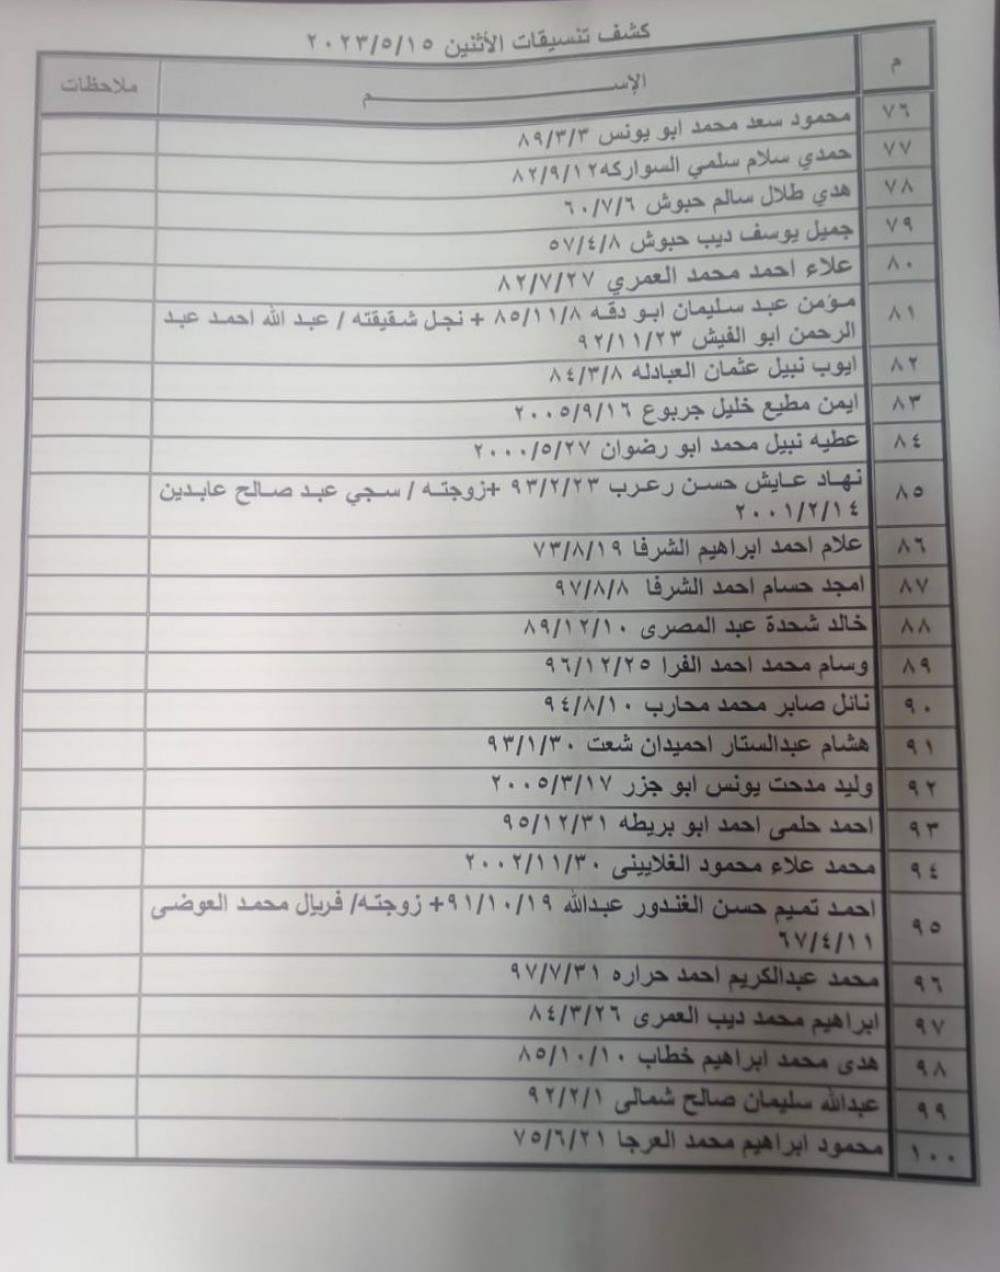 كشف تنسيقات الأثنين ٢٠٢٣/٥/١٥
م الإســـــــــم ملاحظات
٧٦ محمود سعد محمد ابو يونس ٨٩/٣/٣
٧٧ حمدي سلام سلمي السواركه ٨٢/٩/١٢
٧٨ هدي طلال سالم حبوش ٦٠/٧/٦
٧٩ جميل يوسف ديب حبوش ٥٧/٤/٨
٨٠ علاء احمد محمد العمري ٨٢/٧/٢٧
٨١ مؤمن عبد سليمان ابو دقه ٨٥/١١/٨ + نجل شقيقته / عبد الله احمد عبد
الرحمن ابو الفيش ٩٢/١١/٢٣
٨٢ ايوب نبيل عثمان العبادله ٨٤/٣/٨
٨٣ ايمن مطيع خليل جربوع ٢٠٠٥/٩/١٦
٨٤ عطيه نبيل محمد ابو رضوان ٢٠٠٠/٥/٢٧
٨٥ نهاد عايش حسن رعرب ٩٣/٢/٢٣ +زوجته / سجي عبد صالح عابدين
٢٠٠١/٢/١٤
٨٦ علام احمد ابراهيم الشرفا ٧٣/٨/١٩
٨٧ امجد حسام احمد الشرفا ٩٧/٨/٨
٨٨ خالد شحدة عبد المصرى ٨٩/١٢/١٠
٨٩ وسام محمد احمد الفرا ٩٦/١٢/٢٥
٩٠ نائل صابر محمد محارب ٩٤/٨/١٠
٩١ هشام عبدالستار احميدان شعت ٩٣/١/٣٠
٩٢ وليد مدحت يونس ابو جزر ٢٠٠٥/٣/١٧
٩٣ احمد حلمى احمد ابو بريطه ٩٥/١٢/٣١
٩٤ محمد علاء محمود الغلايينى ٢٠٠٢/١١/٣٠
٩٥ احمد تميم حسن الغندور عبدالله ٩١/١٠/١٩+ زوجته/ فريال محمد العوضى
٦٧/٤/١١
٩٦ محمد عبدالكريم احمد حراره ٩٧/٧/٣١
٩٧ ابراهيم محمد ديب العمرى ٨٤/٣/٢٦
٩٨ هدى محمد ابراهيم خطاب ٨٥/١٠/١٠
٩٩ عبدالله سليمان صالح شمالى ٩٢/٢/١
١٠٠ محمود ابراهيم محمد العرجا ٧٥/٦/٢١